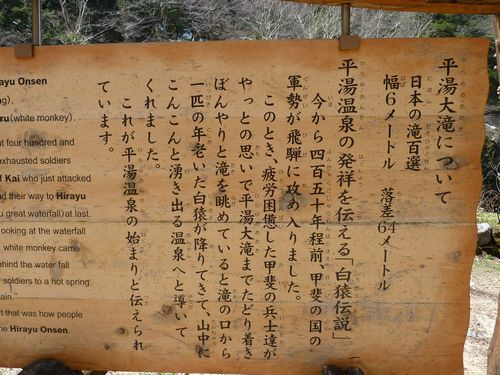 平湯大滝について
日本の滝百選
幅6メートル 落差64メートル
平湯温泉の発祥を伝える「白猿伝説」
今から四百五十年程前、甲斐の国の
軍勢が飛騨に攻め入りました。
このとき、疲労困憊した甲斐の兵士達が
やっとの思いで平湯大滝までたどり着き
ぼんやりと滝を眺めていると滝の口から
一匹の年老いた白猿が降りてきて、山中に
こんこんと湧き出る温泉へと導いて
くれました。
これが平湯温泉の始まりと伝えられ
ています。
Hirayu Onsen
(white monkey).
four hundred and
exhausted soldiers
Kai who just attacked
their way to Hirayu
great waterfall) at last.
looking at the waterfall
white monkey came
behind the water fall
soldiers to a hot spring
that was how people
Hirayu Onsen.